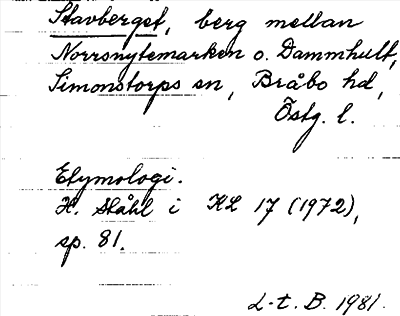 Stavberget, berg mellan
Norrsnytemarken o. Dammhult,
Simonstorps sn, Bråbo hd,
Östg. l.
Etymologi.
H. Ståhl i KL 17 (1972),
sp. 81.
L-t. B. 1981.